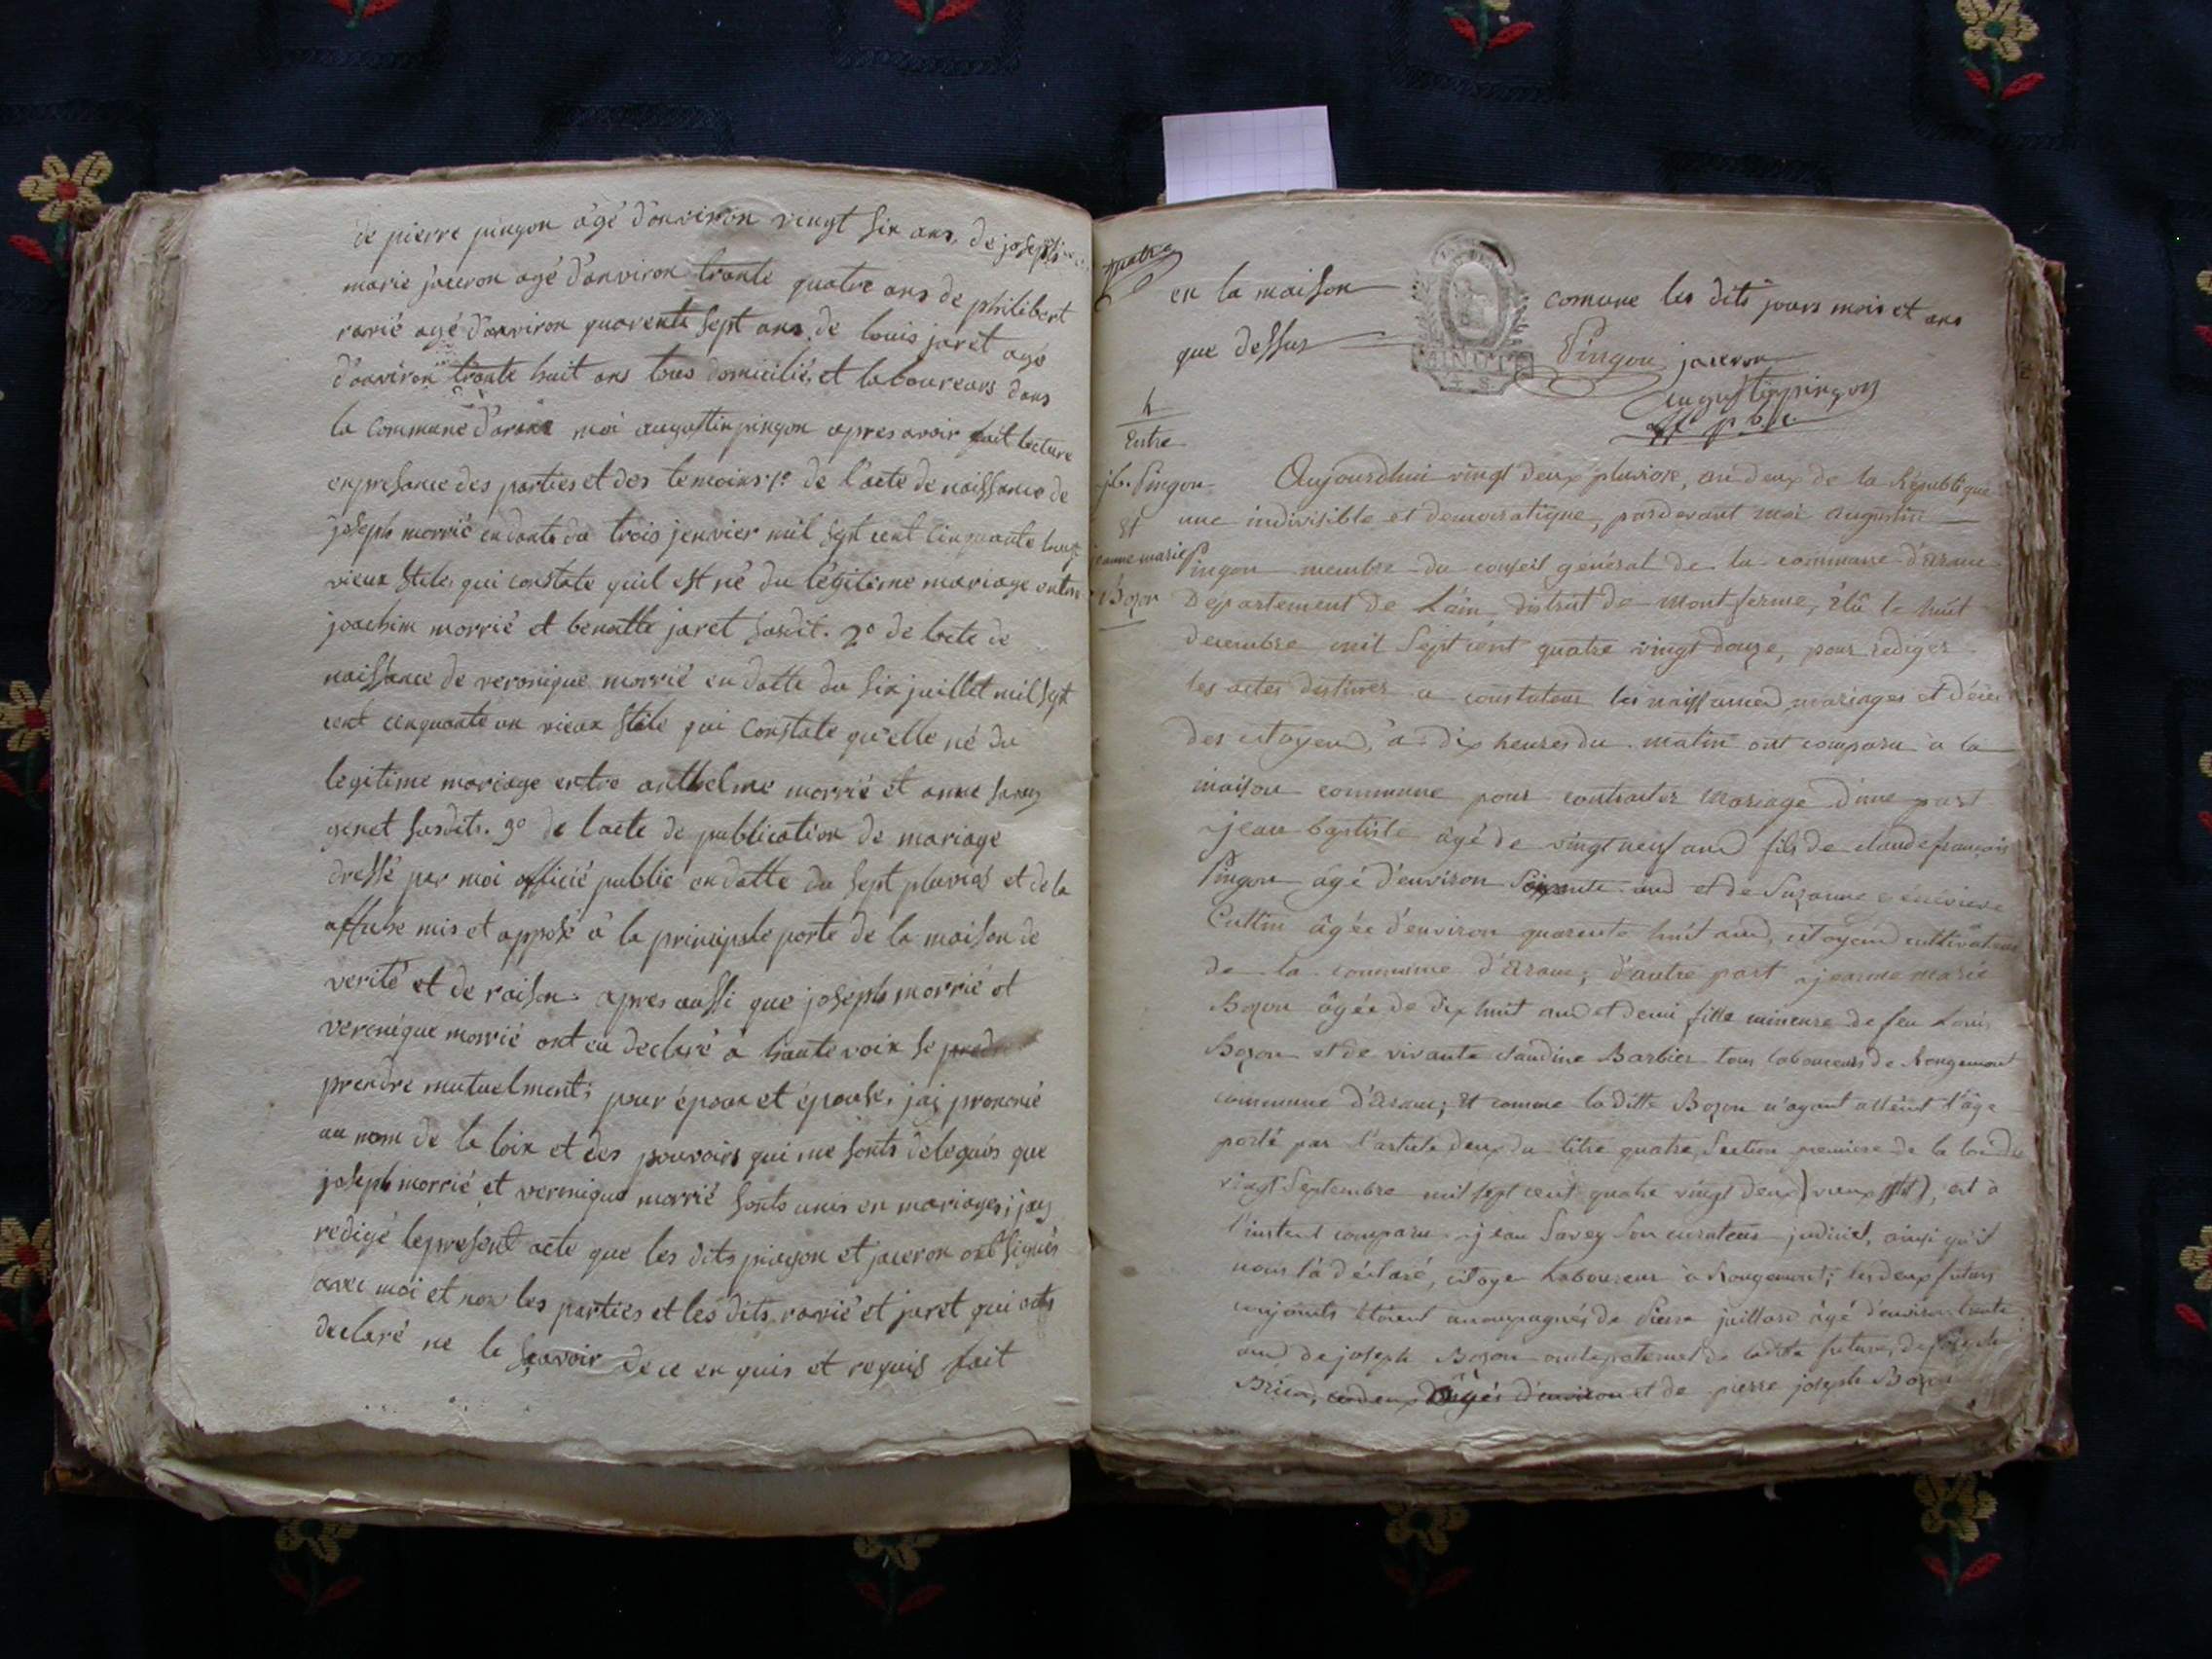 de pierre pingon âgé d'anviron vengt six ans, de joseph
marie jaceron agé d'anviron trante quatre ans de philibert
ravié agé d'anviron quarente sept ans, de louis jaret agé
d'anviron trante huit ans tous domicilié, et laboureurs dans
la commune d'arane moi augustin pingon apres avoir fait lecture
en presance des parties et des temoins 1º de l'acte de naissance de
joseph morrié en datte du trois jenvier mil sept cent cinquante huit
vieux stile, qui constate qu'il est né du légitime mariage entre
joachim morrié et benoitte jaret susdit. 2º de lacte de
naissance de veronique morrié en datte du six juillet mil sept
cent cenquante un vieux stile qui constate qu'elle né du
legitime mariage entre anthelme morrié et anne savey
genet susdits. 3º de lacte de publication de mariage
dressé par moi officié public en datte du sept pluvios et de la
affiche mis et apposé à la principale porte de la maison de
verité et de raison. apres aussi que joseph morrié et
veronique morrié ont eu declaré à haute voix se
prendre mutuelment, pour époux et épouse, jai prononcé
au nom de la loix et des pouvoirs qui me sonts delegués que
joseph morrié et veronique morrié sonts unis en mariages; jay
redigé le present acte que les dits pingon et jaceron ont signés
avec moi et non les parties et les dits ravié et jaret qui onts
declaré ne le sçavoir de ce enquis et requis fait
quatre
en la maison comune les dits jours mois et ans
que dessus
MINUTE
Pingon jaceron
augustin pingon
4
Entre
jb. Pingon
Et
jeanne marie
Bozon
Aujourdhui vingt deux pluviose, an deux de la République
une indivisible et democratique, pardevant moi Augustin
Pingon membre du conseil général de la commune d'Arane
Departement de L'ain, district de Montferme, élû le huit
decembre mil Sept cent quatre vingt douze, pour rediger
les actes destinés a constateur les naissances, mariages et décès
des citoyens, à dix heures du matin ont comparu à la
maison commune pour contracter Mariage d'une part
jean baptiste âgé de vingt neuf ans fils de claude françois
Pingon agé d'environ soixante ans et de Suzanne Genevieve
Cultin âgée d'environ quarente huit ans, citoyens cultivateurs
de la commune d'Arane; d'autre part jeanne marie
Bozon âgée de dix huit ans et demi fille mineure de feu Louis
Bozon et de vivante claudine Barbier tous laboureurs de Rougemont
commune d'Arane; Et comme la ditte Bozon n'ayant atteint l'âge
porté par l'article deux du titre quatre, Section premiere de la loi du
vingt Septembre mil sept cent quatre vingt deux (vieux stil), est à
l'instant comparu jean Savey son curateur judiciel, ainsi qu'il
nous l'a déclaré, citoye Laboureur à Rougemont; les deux futurs
conjoints étoient accompagnés de Pierre juillard âgé d'environ trente
ans de joseph Bozon oncle paternel de ladite future, de joseph
âgés d'environ et de pierre joseph Bozon